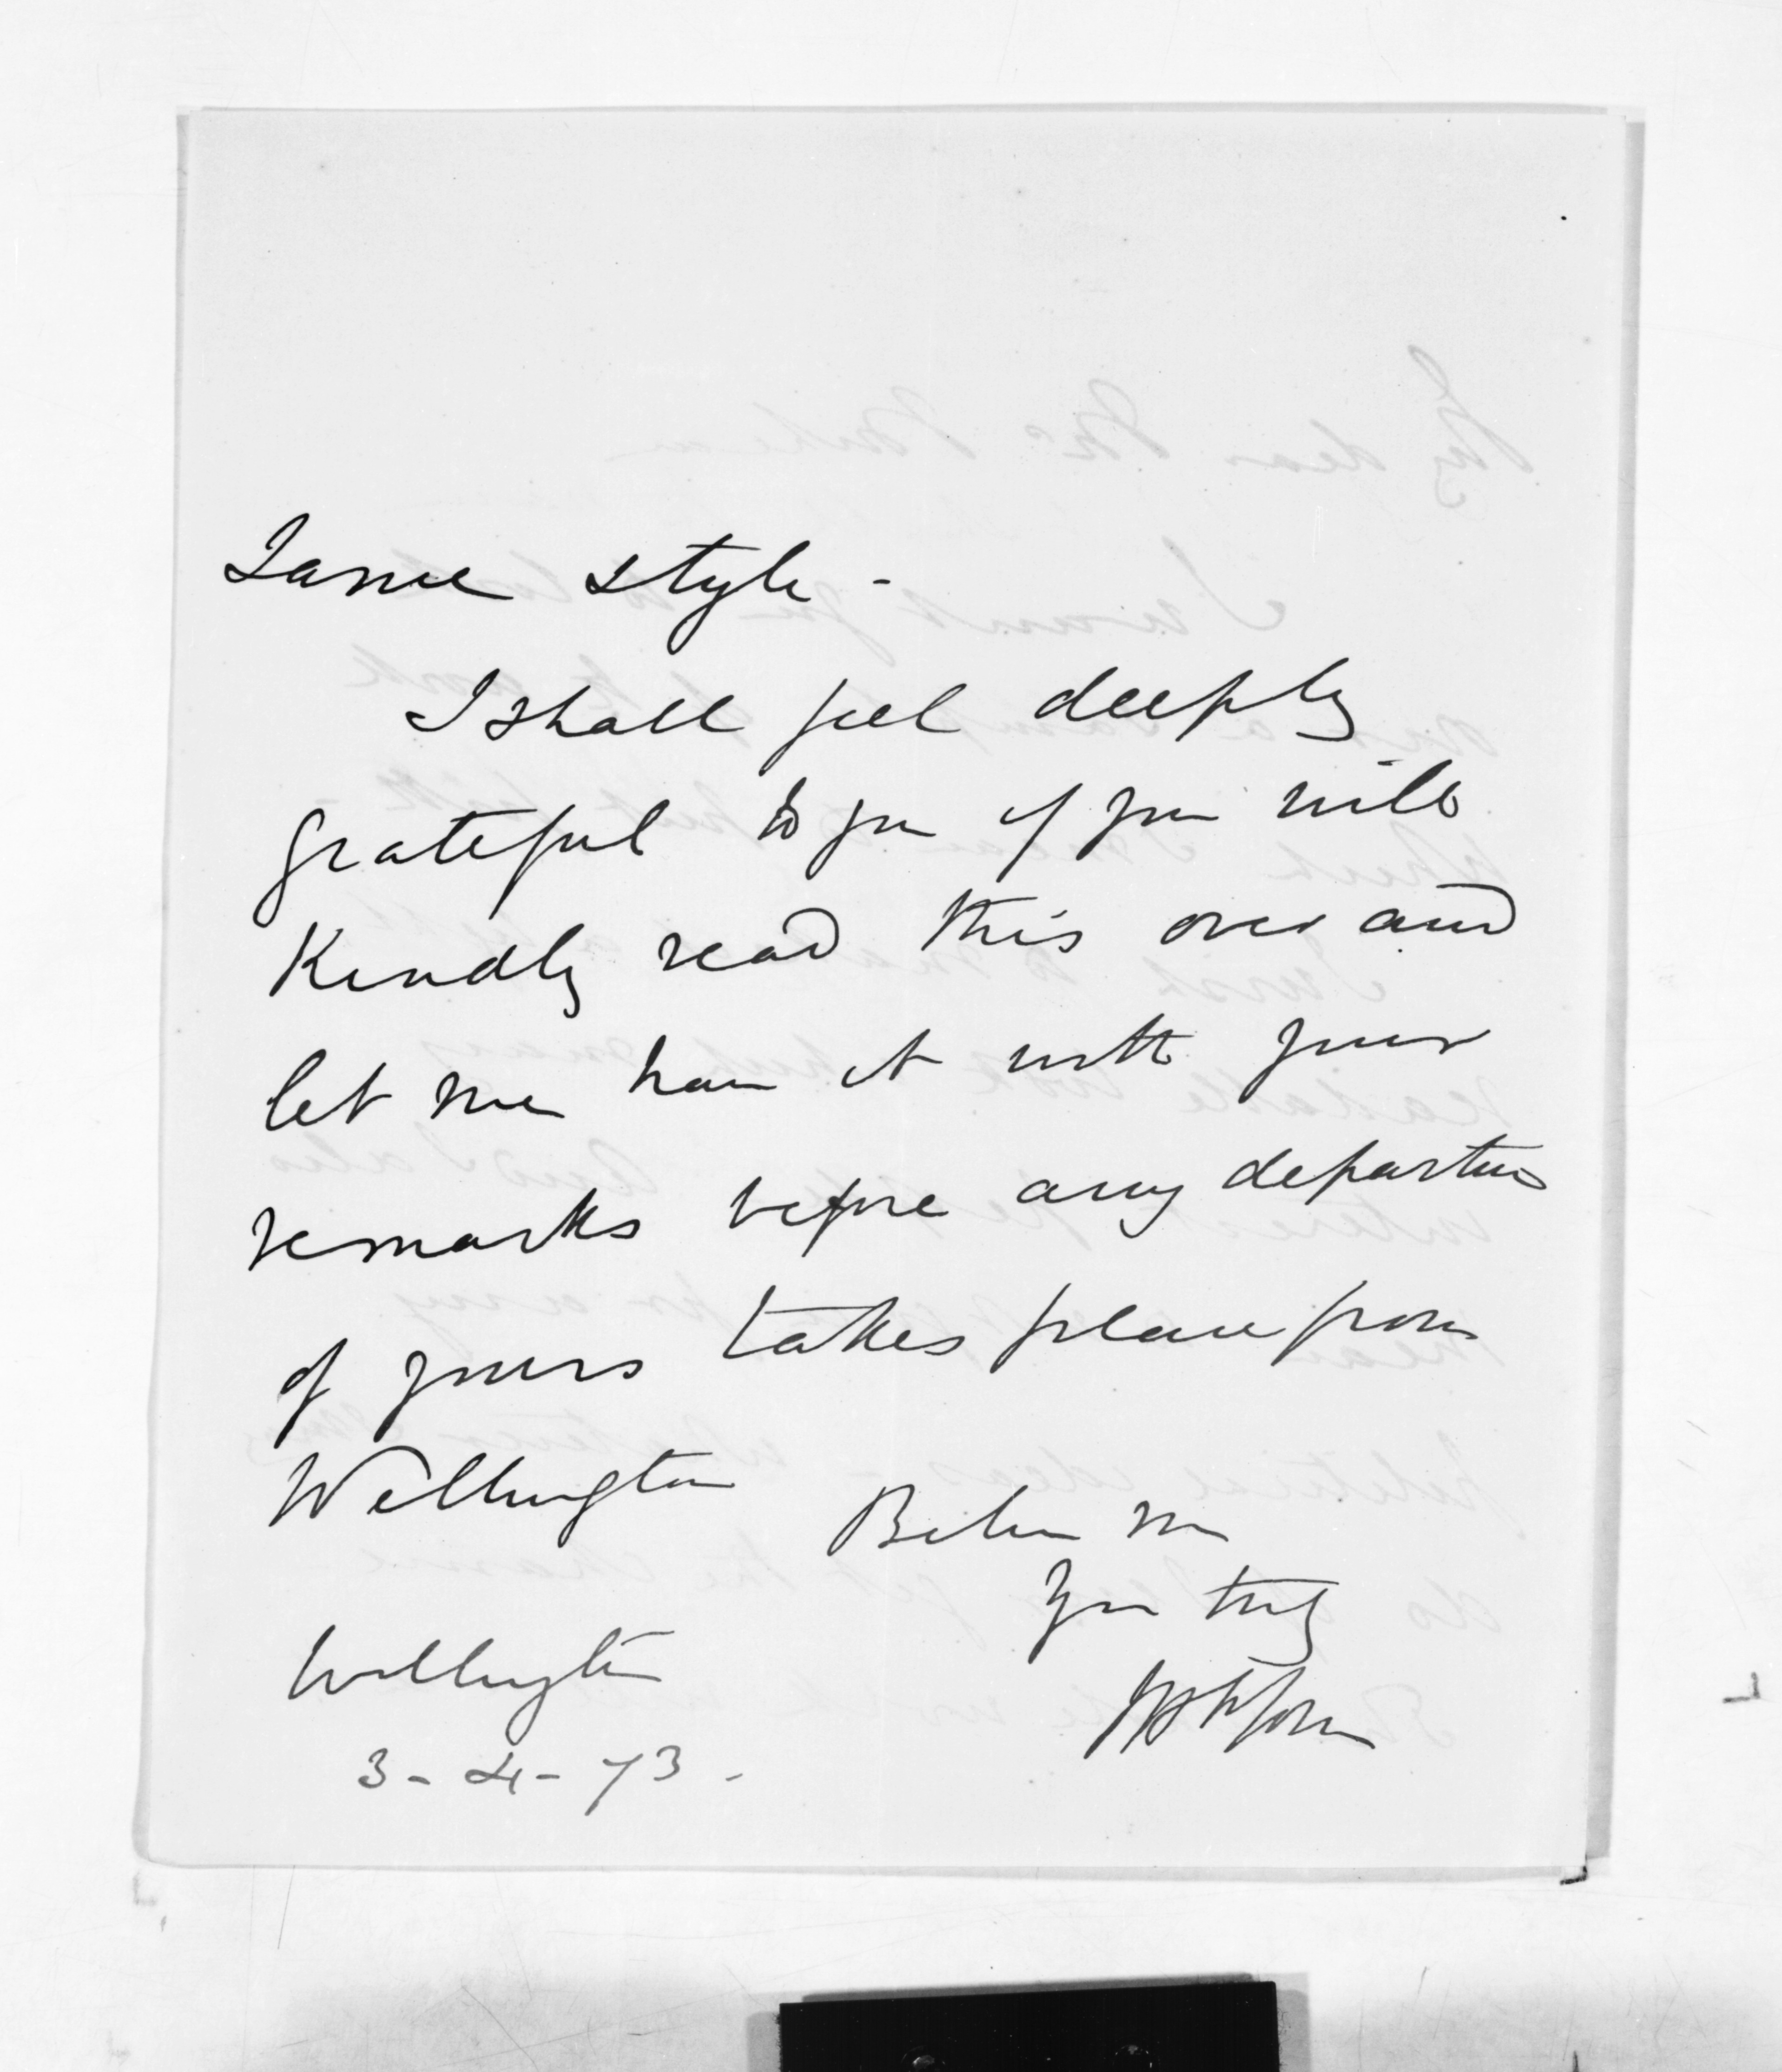 same style -
I shall feel deeply
grateful to you if you will
Kindly read this over and
let me have it with your
remarks before any departure
of yours takes place from
Wellington
Believe me
Yrs truly
Wellington
3 - 4 - 73 -